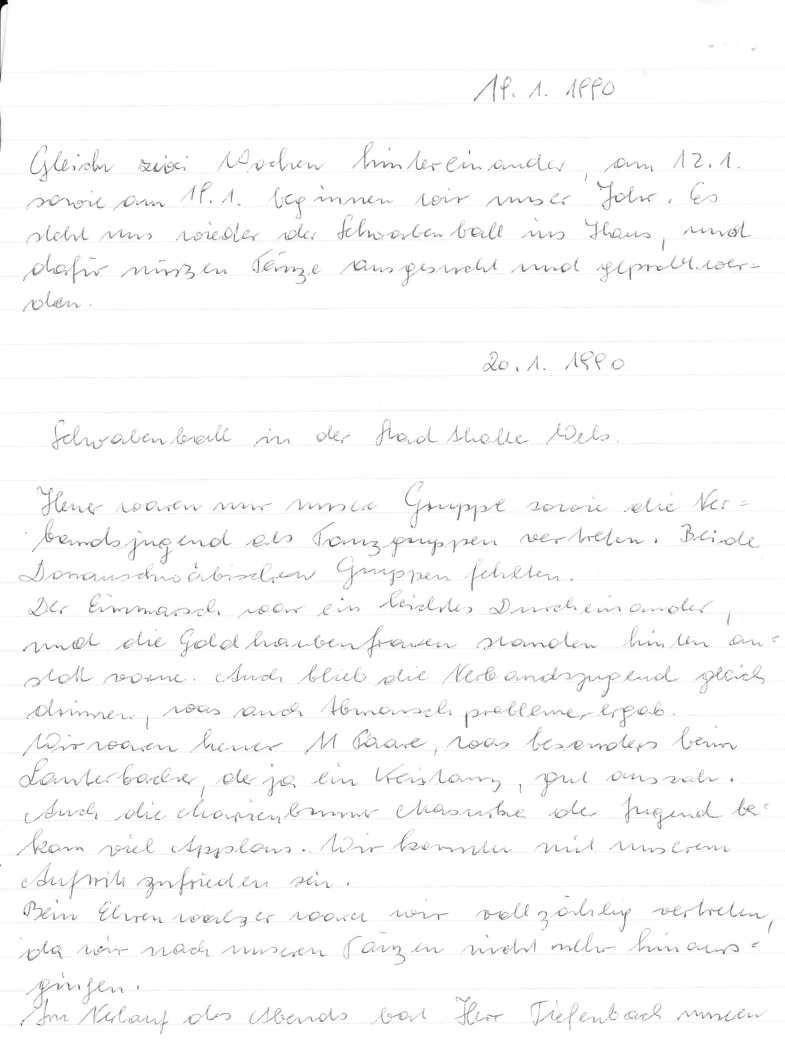 19. 1. 1990
Gleich zwei Wochen hintereinander, am 12.1.
sowie am 19.1. beginnen wir unser Jahr. Es
steht uns wieder der Schwabenball ins Haus, und
dafür müßen Tänze ausgesucht und geprobt wer=
den.
20. 1. 1990
Schwabenball in der Stadthalle Wels.
Heuer waren nur unsere Gruppe sowie die Ver=
bandsjugend als Tanzgruppen vertreten. Beide
Donauschwäbischen Gruppen fehlten.
Der Einmarsch war ein leichtes Durcheinander,
und die Goldhaubenfrauen standen hinten an=
statt vorne. Auch blieb die Verbandsjugend gleich
drinnen, was auch Abmarschprobleme ergab.
Wir waren heuer 11 Paare, was besonders beim
Lauterbacher, der ja ein Kreistanz, gut aussah.
Auch die Marienbrunner Masurka der Jugend be=
kam viel Applaus. Wir konnten mit unserem
Auftritt zufrieden sein.
Beim Ehrenwalzer waren wir vollzählig vertreten,
da wir nach unseren Tänzen nicht mehr hinaus=
gingen.
Im Verlauf des Abends bat Herr Tiefenbach unseren